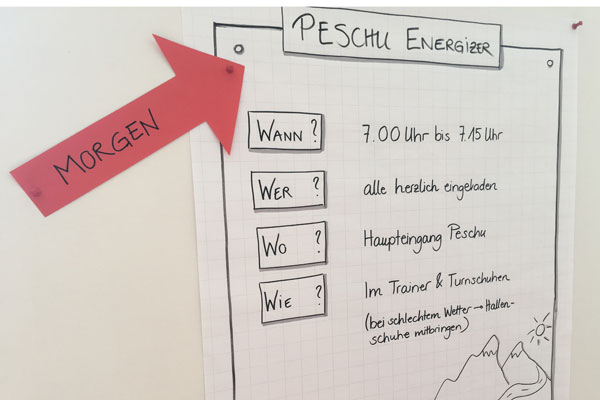 PESCHU ENERGIZER
MORGEN
WANN ? 7.00 Uhr bis 7.15 Uhr
WER ? alle herzlich eingeladen
WO ? Haupteingang Peschu
WIE ? Im Trainer & Turnschuhen
(bei schlechtem Wetter → Hallen-
schuhe mitbringen)